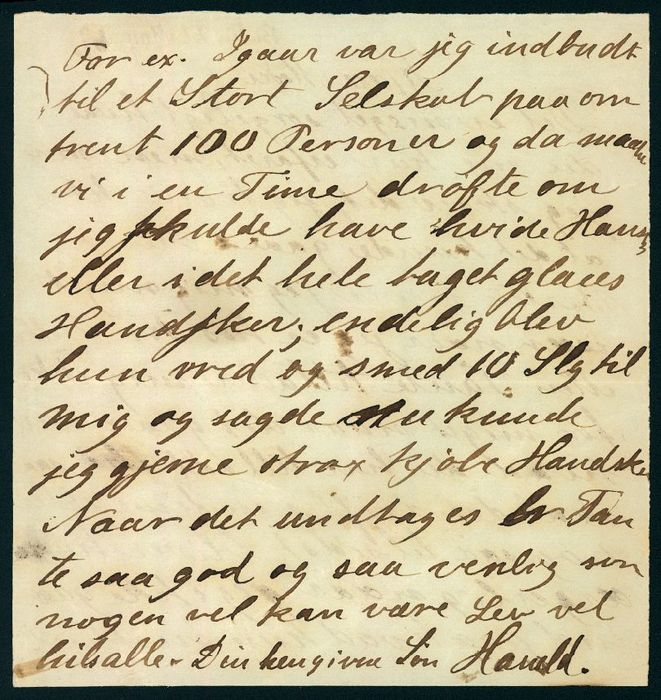 For ex. Igaar var jeg indbudt
til et Stort Selskab paa om
trent 100 Personer og da maatte
vi i en Time drøfte om
jeg skulde have hvide Hansk
eller i det hele taget glaces
Handsker, endelig blev
hun vred og smed 10 Slg til
mig og sagde nu kunde
jeg gjerne strax kjøbe Handsker
Naar det undtages er Tan
te saa god og saa venlig som
nogen vel kan være Lev vel
hils alle. Din hengivne Søn Harald.